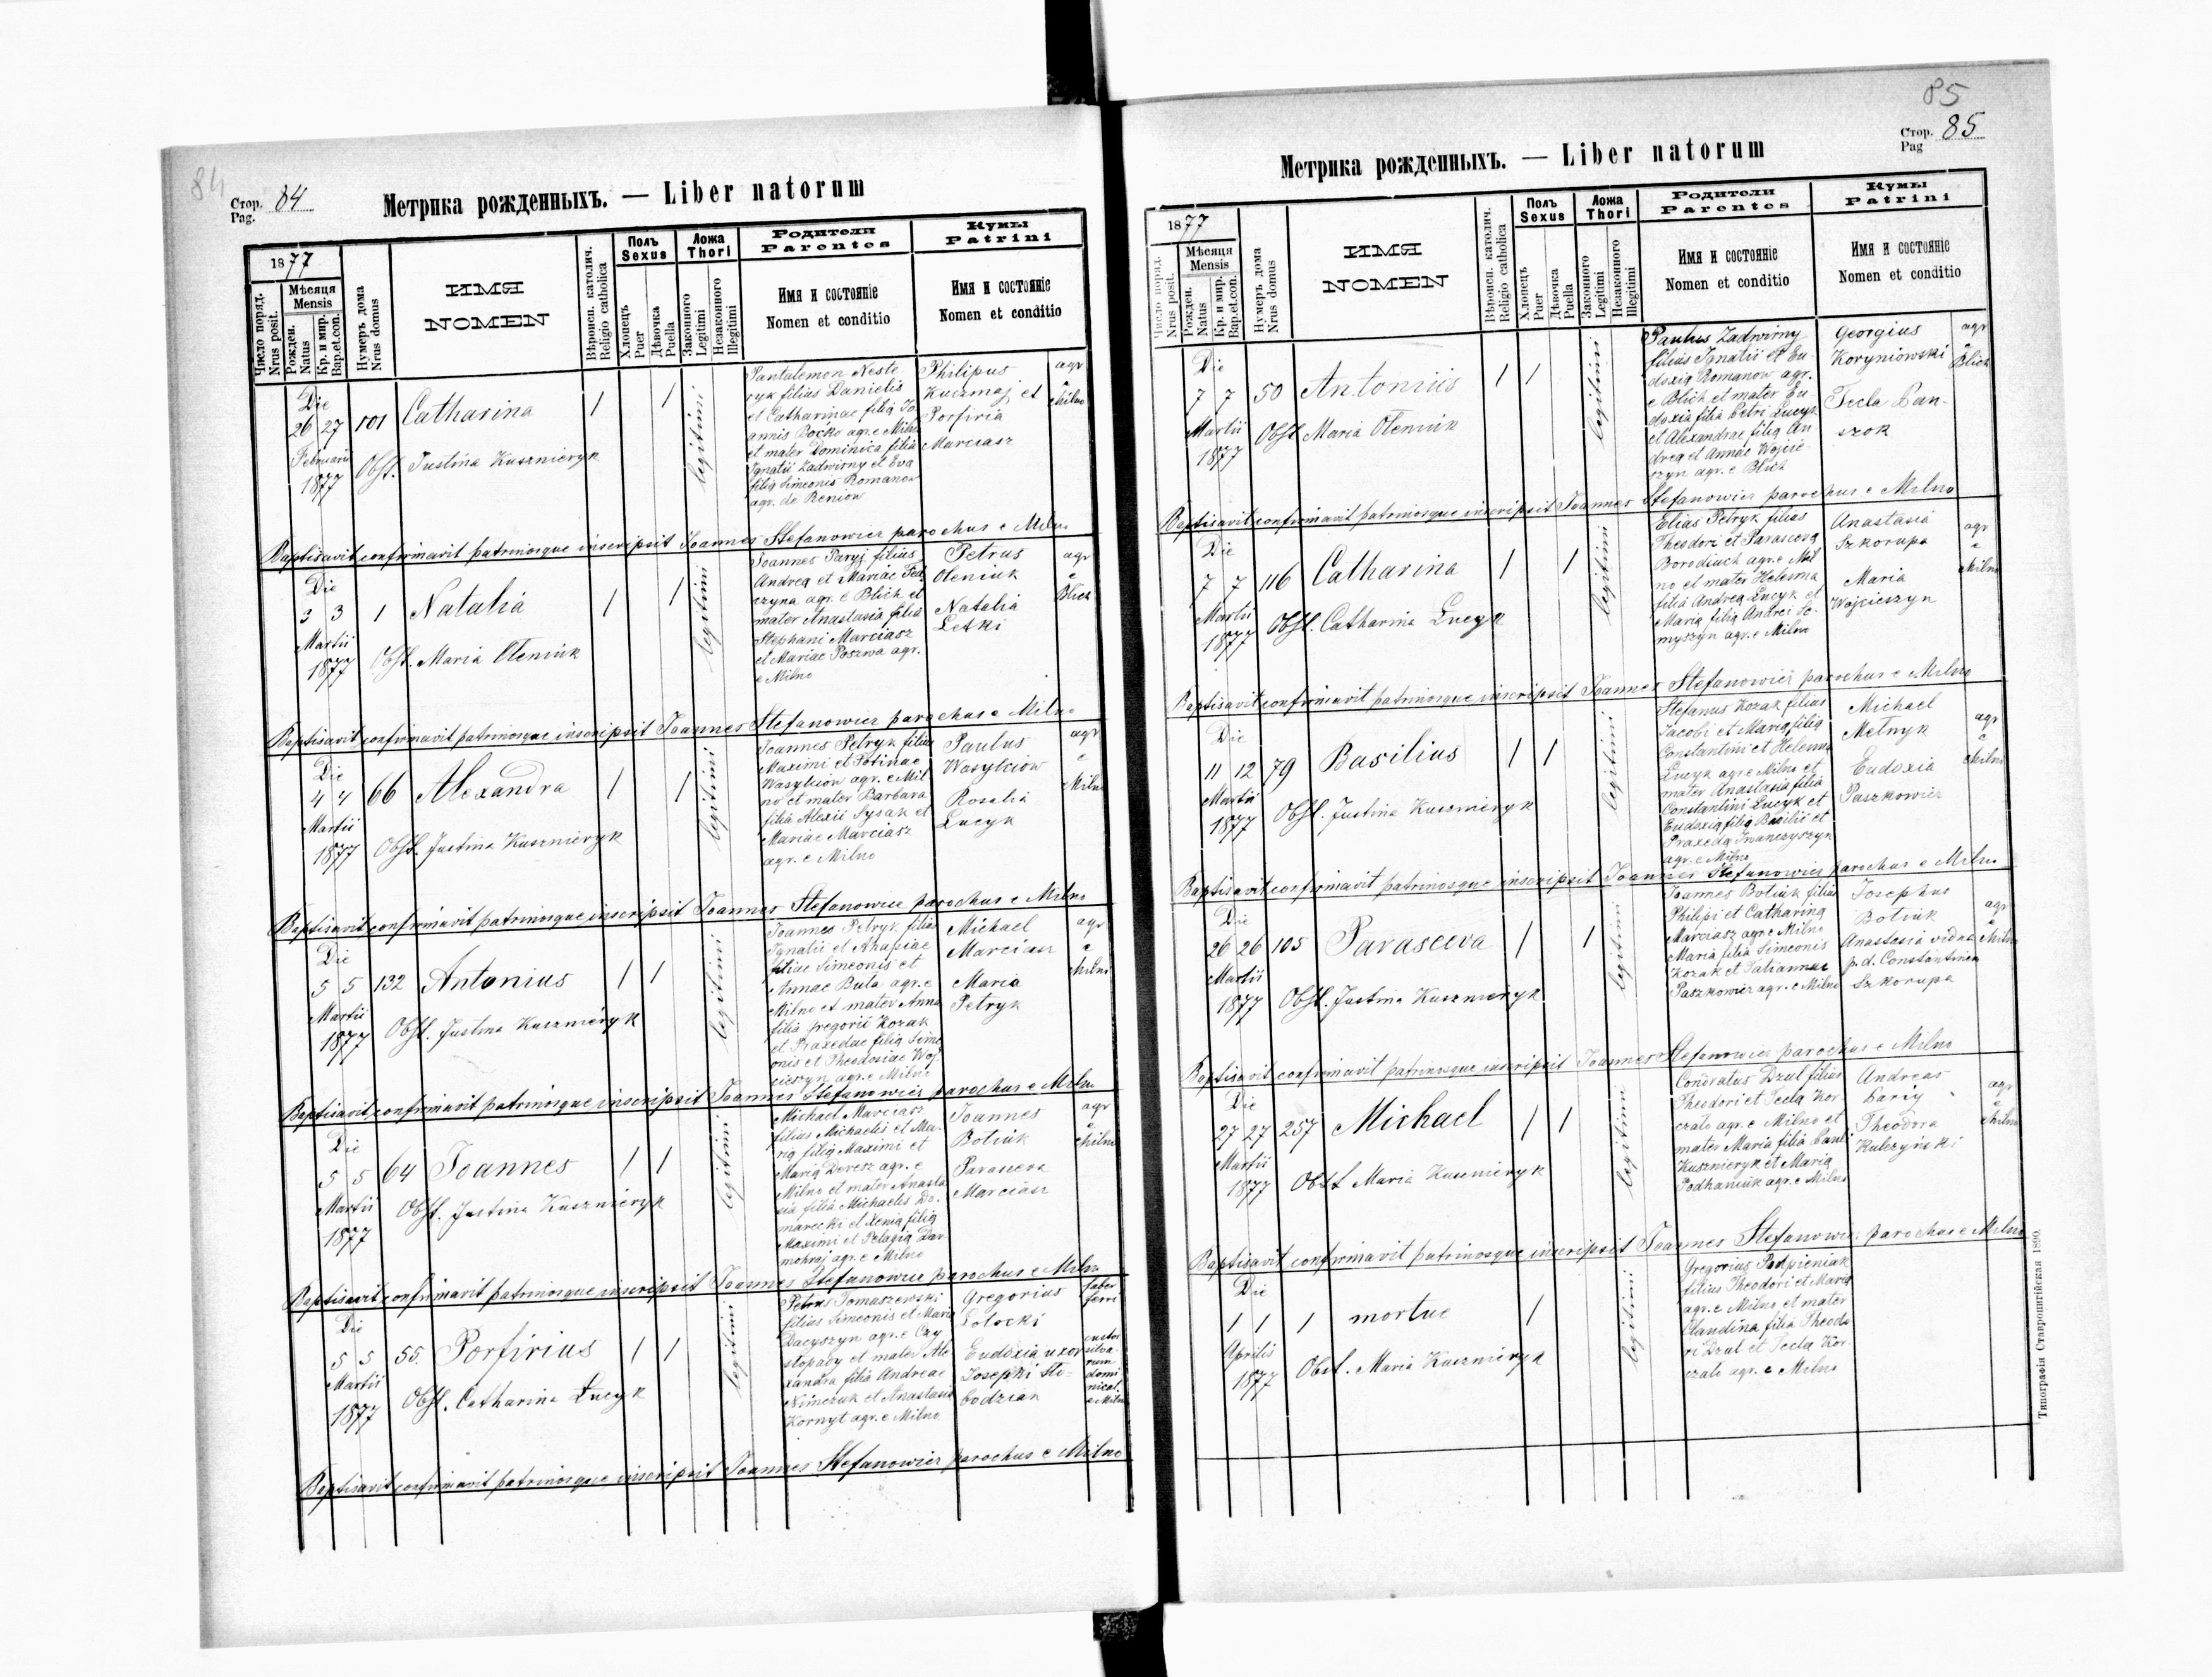 84
Стор. 84
Pag.
Метрика рожденныхъ. — Liber natorum
1877
Число поряд.
Nrus posit.
Мѣсяця
Mensis
Рожден.
Natus
Кр. и мир.
Bap.et.con.
Нумеръ дома
Nrus domus
ИМЯ
NOMEN
Вѣроисп. католич.
Religio catholica
Полъ
Sexus
Хлопецъ
Puer
Дѣвочка
Puella
Ложа
Thori
Законного
Legitimi
Незаконного
Illegitimi
Родители
Parentes
Имя и состояніе
Nomen et conditio
Кумы
Patrini
Имя и состояніе
Nomen et conditio
Die
26 27 101 Catharina 1 1
Februarii
1877
Obst. Justina Kusznieryk
legitimi
Pantalemon Neste
ryk filius Danielis
et Catharinae filią Jo
annis Boćko agr. e Milno
et mater Dominica filia
Ignatii Zadwirny et Eva
filią Simeonis Romanow
agr. de Reniow
Philipus
Kuczmaj et
Porfiria
Marciasz
agr
e
Milno
Baptisavit confirmavit patrinosque inscripsit Joannes Stefanowicz parochus e Milno
Die
3 3 1 Natalia 1 1
Martii
1877
Obst. Maria Oleniuk
legitimi
Joannes Paryj filius
Andreą et Mariae Fed
czyna agr. e Blich et
mater Anastasia filia
Stephani Marciasz
et Mariae Poszwa agr.
e Milno
Petrus
Oleniuk
Natalia
Letki
agr
e
Blich
Baptisavit confirmavit patrinosque inscripsit Joannes Stefanowicz parochus e Milno
Die
4 4 66 Alexandra 1 1
Martii
1877
Obst. Justina Kusznieryk
legitimi
Joannes Petryk filius
Maximi et Fotinae
Wasylciow agr. e Mil
no et mater Barbara
filia Alexii Sysak et
Mariae Marciasz
agr. e Milno
Paulus
Wasylciow
Rosalia
Lucyk
agr
e
Milno
Baptisavit confirmavit patrinosque inscripsit Joannes Stefanowicz parochus e Milno
Die
5 5 132 Antonius 1 1
Martii
1877
Obst. Justina Kusznieryk
legitimi
Joannes Petryk filius
Ignatii et Anassiae
filiae Simeonis et
Annae Buta agr. e
Milno et mater Anna
filia Gregorii Kozak
et Praxedae filią Sime
onis et Theodosiae Woj
cieszyn agr. e Milno
Michael
Marciasz
Maria
Petryk
agr
e
Milno
Baptisavit confirmavit patrinosque inscripsit Joannes Stefanowicz parochus e Milno
Die
5 5 64 Joannes 1 1
Martii
1877
Obst. Justina Kusznieryk
legitimi
Michael Marciasz
filius Michaelis et Ma
rią filią Maximi et
Marią Deresz agr. e
Milno et mater Anasta
sia filia Michaelis Do
marecki et Xenią filią
Maximi et Pelagią Dar
mohraj agr. e Milno
Joannes
Botiuk
Parascera
Marciasz
agr
e
Milno
Baptisavit confirmavit patrinosque inscripsit Joannes Stefanowicz parochus e Milno
Die
5 5 55. Porfirius 1 1
Martii
1877
Obst. Catharina Lucyk
legitimi
Petrus Tomaszewski
filius Simeonis et Maria
Dacyszyn agr. e Czy
stopady et mater Ale
xandra filia Andreae
Nimczuk et Anastasia
Kornyt agr. e Milno
Gregorius
Sotocki
Eudoxia uxor
Josephi Sto-
bodzian
faber
ferri
custos
silva
rum
domi
nical.
e Milno
Baptisavit confirmavit patrinosque inscripsit Joannes Stefanowicz parochus e Milno
85
Стор. 85
Pag
Метрика рожденныхъ. — Liber natorum
1877
Число поряд.
Nrus posit.
Мѣсяця
Mensis
Рожден.
Natus
Кр. и мир.
Bap.et.con.
Нумеръ дома
Nrus domus
ИМЯ
NOMEN
Вѣроисп. католич.
Religio catholica
Полъ
Sexus
Хлопецъ
Puer
Дѣвочка
Puella
Ложа
Thori
Законного
Legitimi
Незаконного
Illegitimi
Родители
Parentes
Имя и состояніе
Nomen et conditio
Кумы
Patrini
Имя и состояніе
Nomen et conditio
Die
7 7 50 Antoniis 1 1
Martii
1877
Obst Maria Oleniuk
legitimi
Paulus Zadwirny
filius Ignatii et Eu-
doxią Romanow agr.
e Blich et mater Eu
doxia filia Petri Lucyk
et Alexandrae filią An
dreą et Annae Wojcie
szyn agr. e Blich
Georgius
Koryniowski
Tecla Pan-
szok
agr
e
Blich
Baptisavit confirmavit patrinosque inscripsit Joannes Stefanowicz parochus e Milno
Die
7 7 116 Catharina 1 1
Martii
1877
Obst. Catharina Lucyk
legitimi
Elias Petryk filius
Theodori et Parascevą
Borodiuch agr. e Mil
no et mater Helenna
filia Andreą Lucyk et
Marią filią Andrei Se-
myszyn agr. e Milno
Anastasia
Szkorupa
Maria
Wojcieszyn
agr
e
Milno
Baptisavit confirmavit patrinosque inscripsit Joannes Stefanowicz parochus e Milno
Die
11 12 79 Basilius 1 1
Martii
1877
Obst. Justina Kusznieryk
legitimi
Stefanus Kozak filius
Jacobi et Marią filią
Constantini et Helenna
Lucyk agr. e Milno et
mater Anastasia filia
Constantini Lucyk et
Eudoxią filią Basilii et
Praxedą Iwanczyszyn
agr. e Milno
Michael
Melnyk
Eudoxia
Paszkowicz
agr
e
Milno
Baptisavit confirmavit patrinosque inscripsit Joannes Stefanowicz parochus e Milno
Die
26 26 105 Parascera 1 1
Martii
1877
Obst. Justina Kusznieryk
legitimi
Joannes Botiuk filius
Philipi et Catharina
Marciasz agr. e Milno
Maria filia Simeonis
Kozak et Tatiannae
Paszkowicz agr. e Milno
Josephus
Botiuk
Anastasia vidna
p. d. Constantinem
Szkorupa
agr
e
Milno
Baptisavit confirmavit patrinosque inscripsit Joannes Stefanowicz parochus e Milno
Die
27 27 257 Michael 1 1
Martii
1877
Obst Maria Kusznieryk
legitimi
Condratus Dzul filius
Theodori et Teclą Kor-
czalo agr. e Milno et
mater Maria filia Pauli
Kusznieryk et Marią
Podhaniuk agr. e Milno
Andreas
Pariy
Theodora
Kulczyński
agr
e
Milno
Baptisavit confirmavit patrinosque inscripsit Joannes Stefanowicz parochus e Milno
Die
1 1 1 mortue 1
Aprilis
1877
Obst. Maria Kusznieryk
legitimi
Gregorius Podpieniak
filius Theodori et Maria
agr. e Milno, et mater
Claudina filia Theodo
ri Dzul et Tecla Kor-
czalo agr. e Milno
Типографія Ставропигійская 1890.